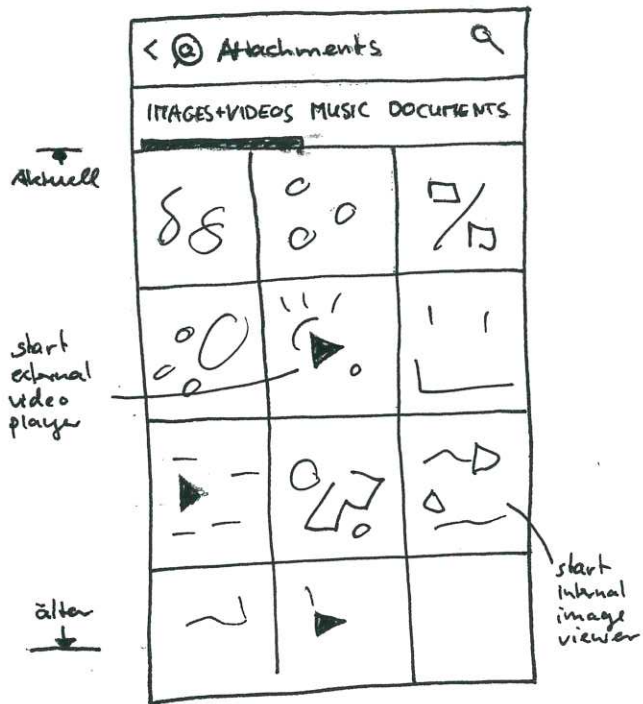 < @ Attachments
IMAGES+VIDEOS MUSIC DOCUMENTS
Aktuell
start
external
video
player
start
internal
image
viewer
älter